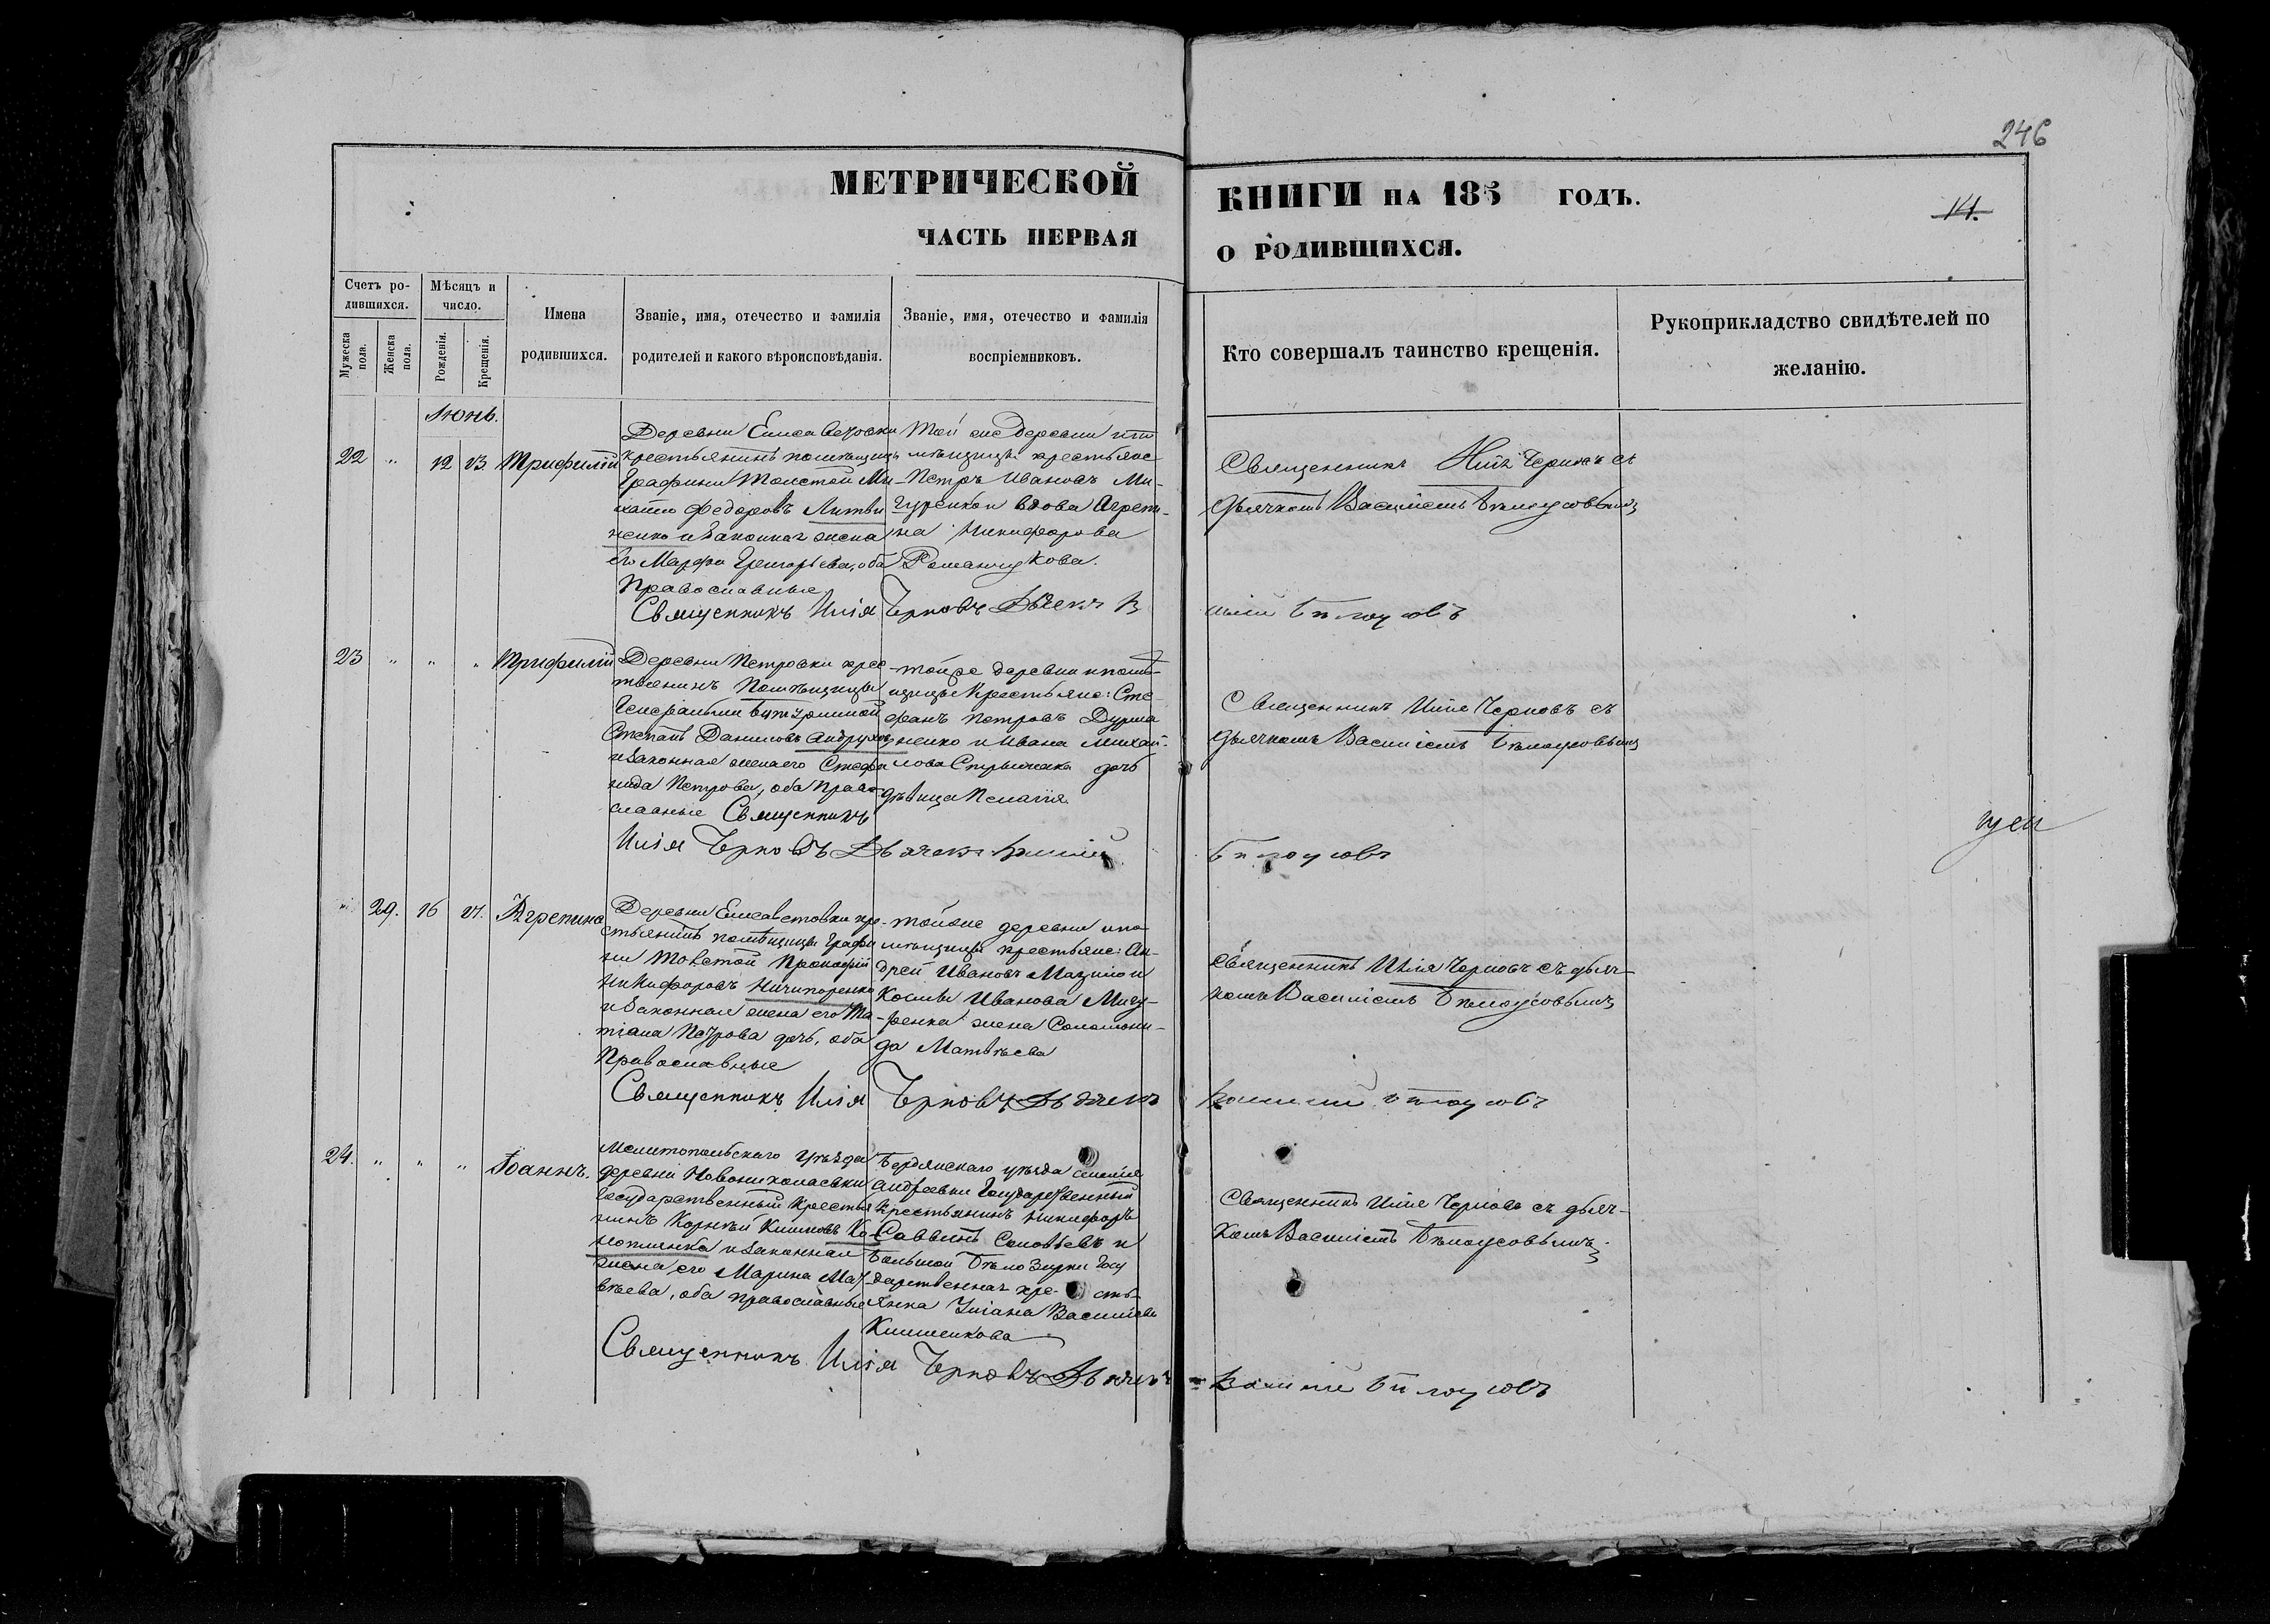 246
МЕТРИЧЕСКОЙ
КНИГИ НА 185 ГОДЪ.
14.
ЧАСТЬ ПЕРВАЯ
О РОДИВШИХСЯ.
Счетъ ро-
дившихся.
Мужеска пола.
Женска пола.
Мѣсяцъ и
число.
Рожденія.
Крещенія.
Имена
родившихся.
Званіе, имя, отечество и фамилія
родителей и какого вѣроисповѣданія.
Званіе, имя, отечество и фамилія
воспріемниковъ.
Кто совершалъ таинство крещенія.
Рукоприкладство свидѣтелей по
желанію.
Июнь.
22 " 12 13 Трифилій
Деревни Елисаветовки
крестьянинъ помѣщицы
Графини Толстой Ми-
хаилъ Федоровъ Литви
ненко и законная жена
его Марфа Григорьева, оба
Православные
Той же деревни и по
мѣщицы крестьяне
Петръ Ивановъ Ми-
гуренко и вдова Агрепи-
на Никифорова
Романчукова.
Священникъ Илія Черновъ съ
дьячкомъ Василіемъ Бѣлоусовымъ
Священникъ Илія Черновъ Дьячекъ В
силій Бѣлоусовъ
23 " " " Трифилій
Деревни Петровки крес-
тьянинъ Помѣщицы
Генеральши
Степанъ Даниловъ Андрухов
и законная жена его Стефа
нида Петрова, оба Право-
славные
тойже деревни и помѣ-
щицы Крестьяне: Сте-
фанъ Петровъ Дурма
ненко и Ивана Михай-
лова дочь
дѣвица Пелагія
Священникъ Илія Черновъ съ
дьячкомъ Василіемъ Бѣлоусовымъ
Священникъ
Илія Черновъ Дьячекъ Василій
Бѣлоусовъ
" 29. 16 17. Агрепина
Деревни Елисаветовки кре-
стьянинъ помѣщицы Графи
ни Толстой Прокофій
Никифоровъ Ничипоренко
и законная жена его Та-
тіана Петрова дочь, оба
Православные
тойже деревни и по-
мѣщицы крестьяне: Ан-
дрей Ивановъ и
Косьмы Иванова Мигу-
ренка жена Соломони-
да Матвѣева
Священникъ Илія Черновъ съ дьяч-
комъ Василіемъ Бѣлоусовымъ
Священникъ Илія Черновъ Дьячекъ
Василій Бѣлоусовъ
24. " " " Іоаннъ.
Мелитопольскаго уѣзда
деревни Новониколаевки
Государственный Крестья
нинъ Корнѣй Климовъ Ко
ноплянка и законная
жена его Марина Мат-
вѣева, оба православные
Бердянскаго уѣзда селенія
Андреевки Государственный
Крестьянинъ Никифоръ
Саввинъ Соловьевъ и
Большой Бѣлозерки Госу
дарственная кре- сть-
янка Уліана Васильева
Клименкова
Священникъ Илія Черновъ съ дьяч-
комъ Василіемъ Бѣлоусовымъ
Священникъ Илія Черновъ Дьячекъ
Василій Бѣлоусовъ